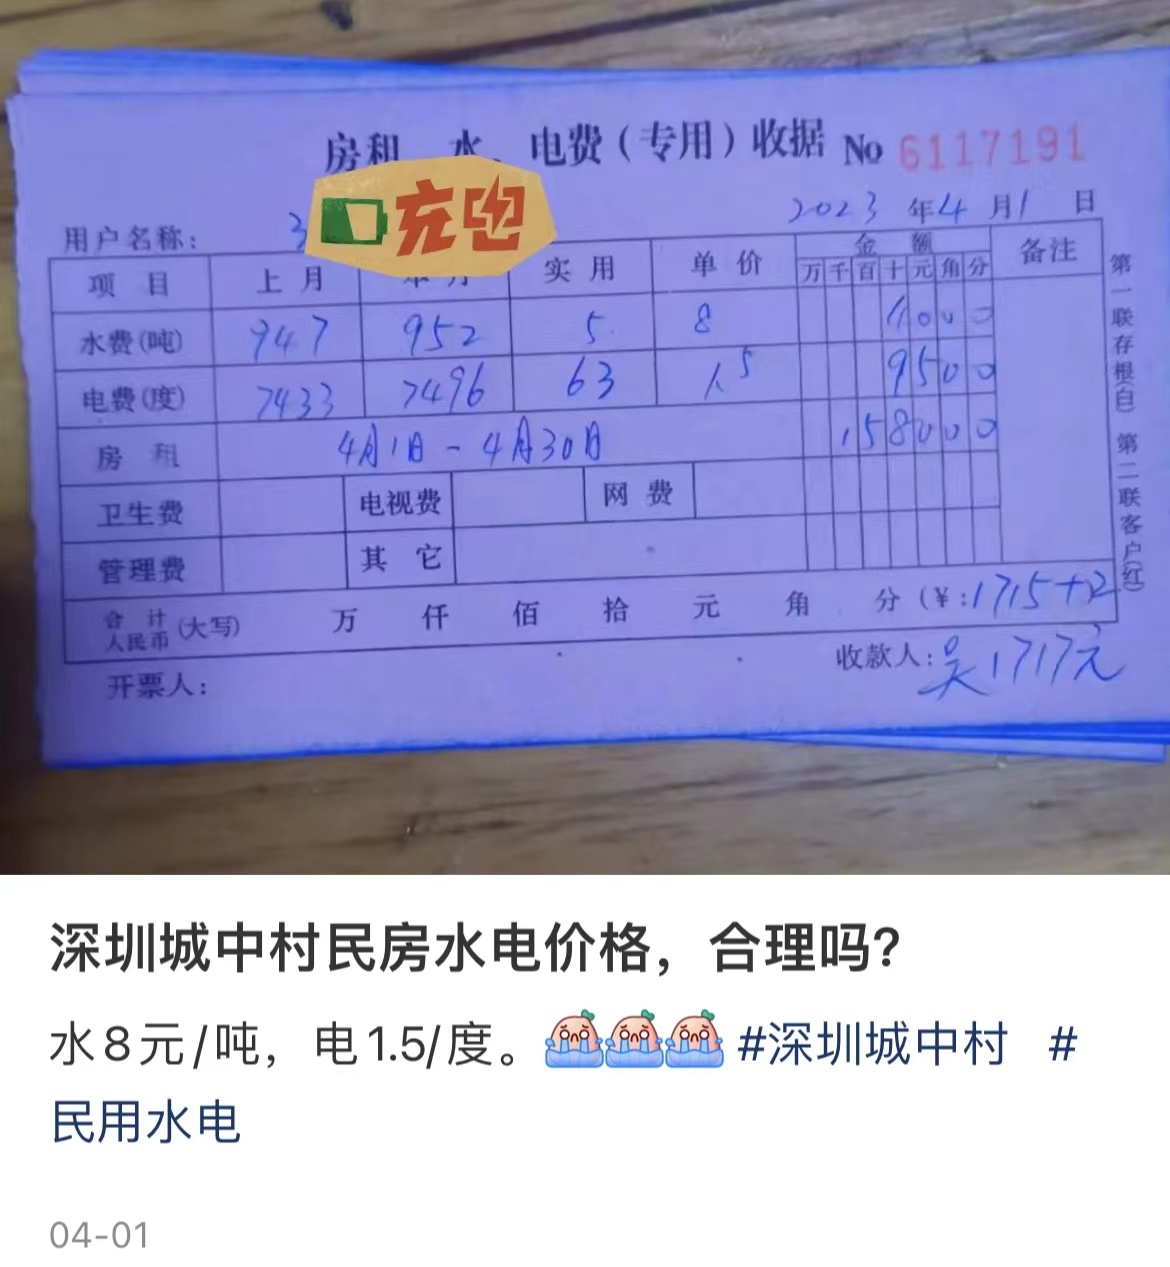 房租 水、电费(专用)收据 No 6117191
充电
用户名称: 3
2023 年 4 月 1 日
项目 上月 本月 实用 单价 金额 备注
万 千 百 十 元 角 分
水费(吨) 947 952 5 8 4000
电费(度) 7433 7496 63 1.5 9500
房租 4月1日-4月30日 158000
卫生费 电视费 网费
管理费 其它
合计人民币(大写) 万 仟 佰 拾 元 角 分(¥:1715+2
开票人: 收款人:吴 1717元
第一联存根(白) 第二联客户(红)
深圳城中村民房水电价格，合理吗?
水8元/吨，电1.5/度。 #深圳城中村 #
民用水电
04-01